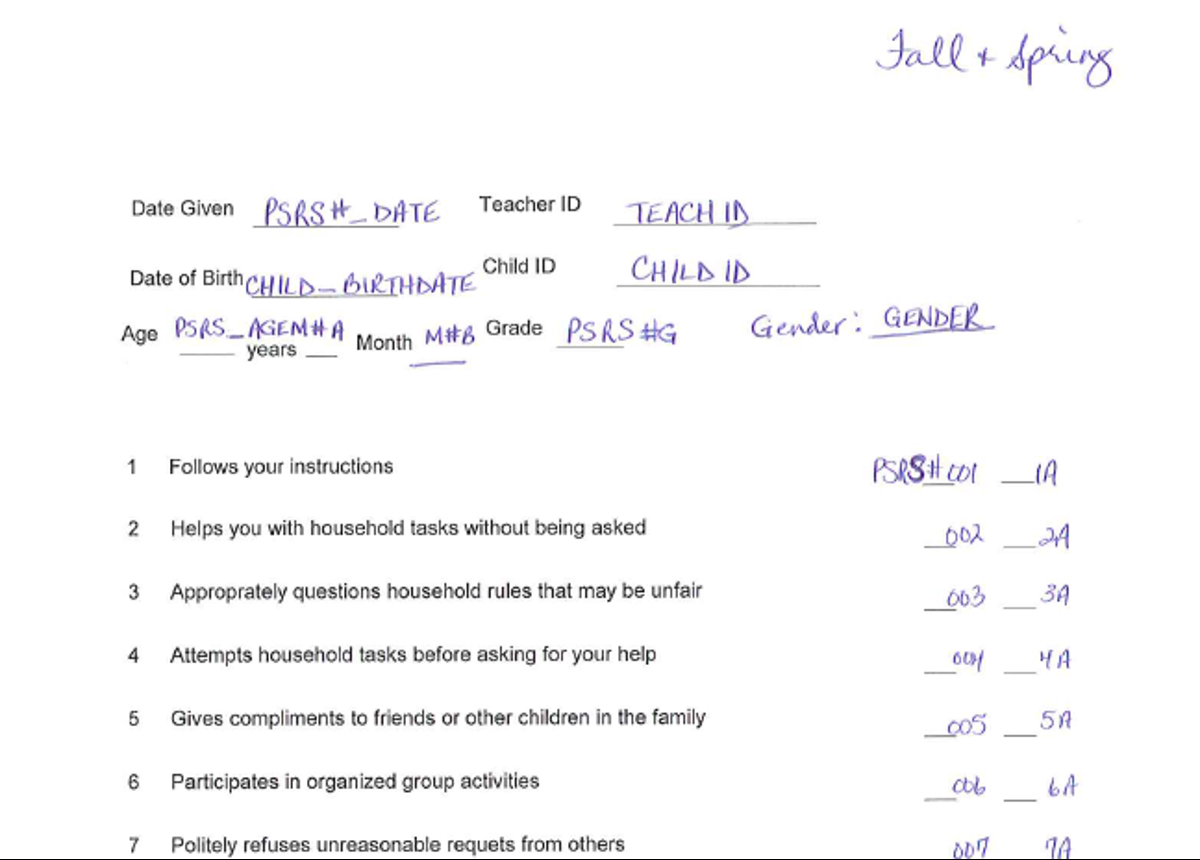 Fall + Spring
Date Given PSRS#_DATE Teacher ID TEACH ID
Date of Birth CHILD_BIRTHDATE Child ID CHILD ID
Age PSRS_AGEM#A years Month M#B Grade PSRS#G Gender: GENDER
1 Follows your instructions PSRS#001 1A
2 Helps you with household tasks without being asked 002 2A
3 Approprately questions household rules that may be unfair 003 3A
4 Attempts household tasks before asking for your help 004 4A
5 Gives compliments to friends or other children in the family 005 5A
6 Participates in organized group activities 006 6A
7 Politely refuses unreasonable requets from others 007 7A